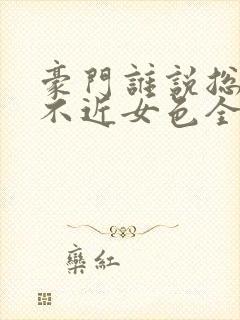 豪門誰說總
不近女色全
欒紅